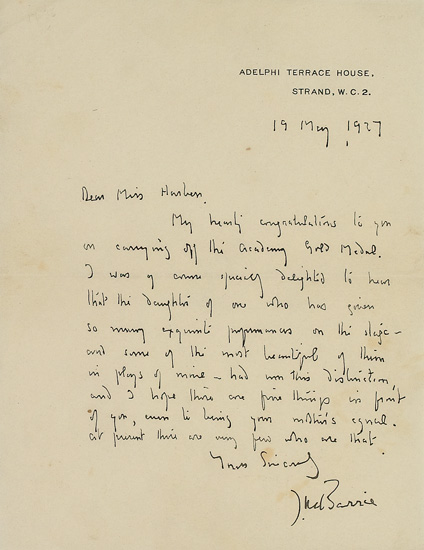 ADELPHI TERRACE HOUSE.
STRAND, W.C.2.
19 May 1927
Dear Miss Harben.
My hearty congratulations to you
on carrying off the Academy Gold Medal.
I was of course specially delighted to hear
that the daughter of one who has given
so many exquisite performances on the stage –
and some of the most beautiful of them
in plays of mine – had won this distinction,
and I hope there are fine things in front
of you, even to being your mother's equal.
at present there are very few who are that
Yours Sincerely
J M Barrie